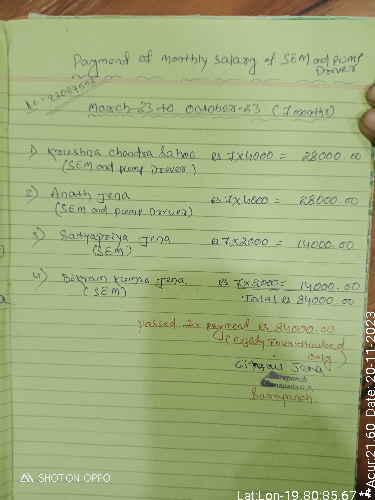 Payment of monthly salary of SEM and PUMP
Driver
Ac:- 83087558
March-23 to October-23 (7 months)
1) Krushna chandra Sahoo Rs 7x4000 = 28000.00
(SEM and pump Drever)
2) Anath Jena Rs 7x4000 = 28000.00
(SEM and pump Driver)
3) Satyapriya Jena Rs 7x2000 = 14000.00
(SEM)
4) Bikram Kumar Jena Rs 7x2000 = 14000.00
(SEM)
Total Rs 84000.00
passed for payment Rs 84000.00
(Eighty Four thousand
only)
Jena
Sarapanch
Sarapanch
SHOT ON OPPO
Lat:Lon-19.80:85.67 **Acur:21.60 Date, 20-11-2023